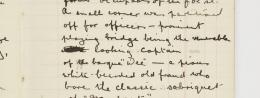 a small corner was partitioned
off for officers — prominent
playing bridge being the venerable
looking captain
of the barque "Wee" — a pious
white-bearded old fraud who
bore the classic sobriquet